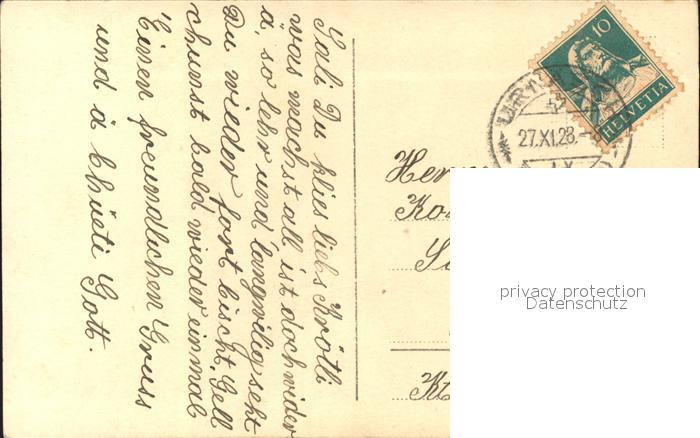 Sali Du klies liebs Krötli
was machst all ist doch wider
ä, so lehr und langwilig seht
Du wieder fort bischt. Gell
chunst bald wieder einmal
Einen freundlichen Gruss
und ä bhüeti Gott.
10
HELVETIA
27.XI.28.
privacy protection
Datenschutz